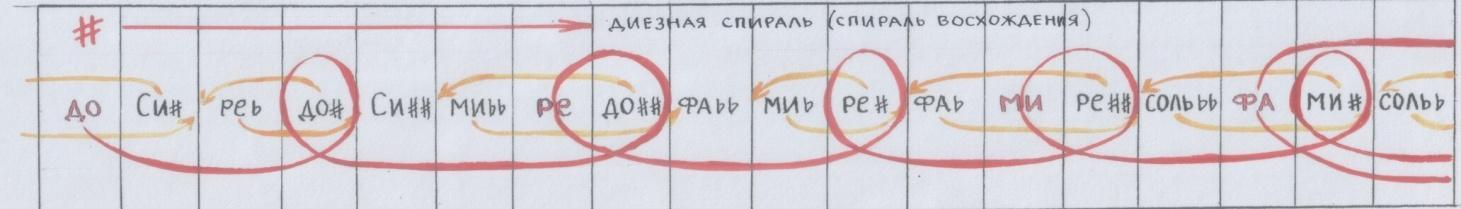 # ДИЕЗНАЯ СПИРАЛЬ (СПИРАЛЬ ВОСХОЖДЕНИЯ)
ДО СИ# РЕb ДО# СИ## МИbb РЕ ДО## ФАbb МИb РЕ# ФАb МИ РЕ## СОЛЬbb ФА МИ# СОЛЬb